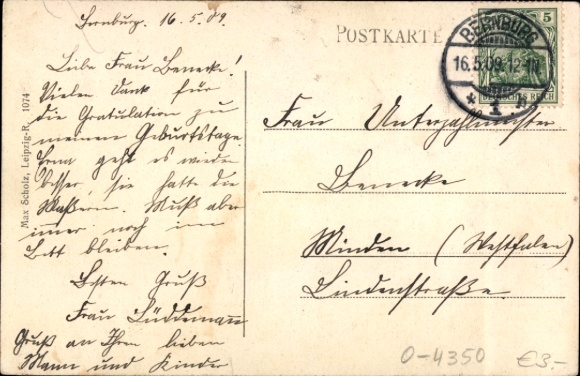 Bernburg. 16.5.09.
Liebe Frau Benecke!
Vielen Dank für
die Gratulation zu
meinem Geburtstage.
Erna geht es wieder
besser, sie hatte die
Masern. Muß aber
immer noch im
Bett bleiben.
Besten Gruß
Frau Lüddemann
Gruß an Ihren lieben
Mann und Kinder
Max Scholz, Leipzig-R. 1074
POSTKARTE
BERNBURG
16.5.09.12-1N.
* 1 *
5
DEUTSCHES REICH
Frau Unterzahlmeister
Benecke
Minden (Westfalen)
Lindenstraße.
O-4350
€3.-